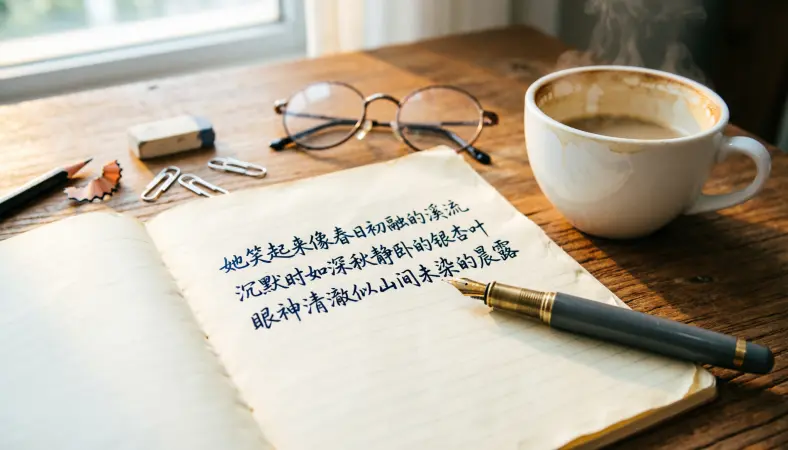 她笑起来像春日初融的溪流
沉默时如深秋静卧的银杏叶
眼神清澈似山间未染的晨露